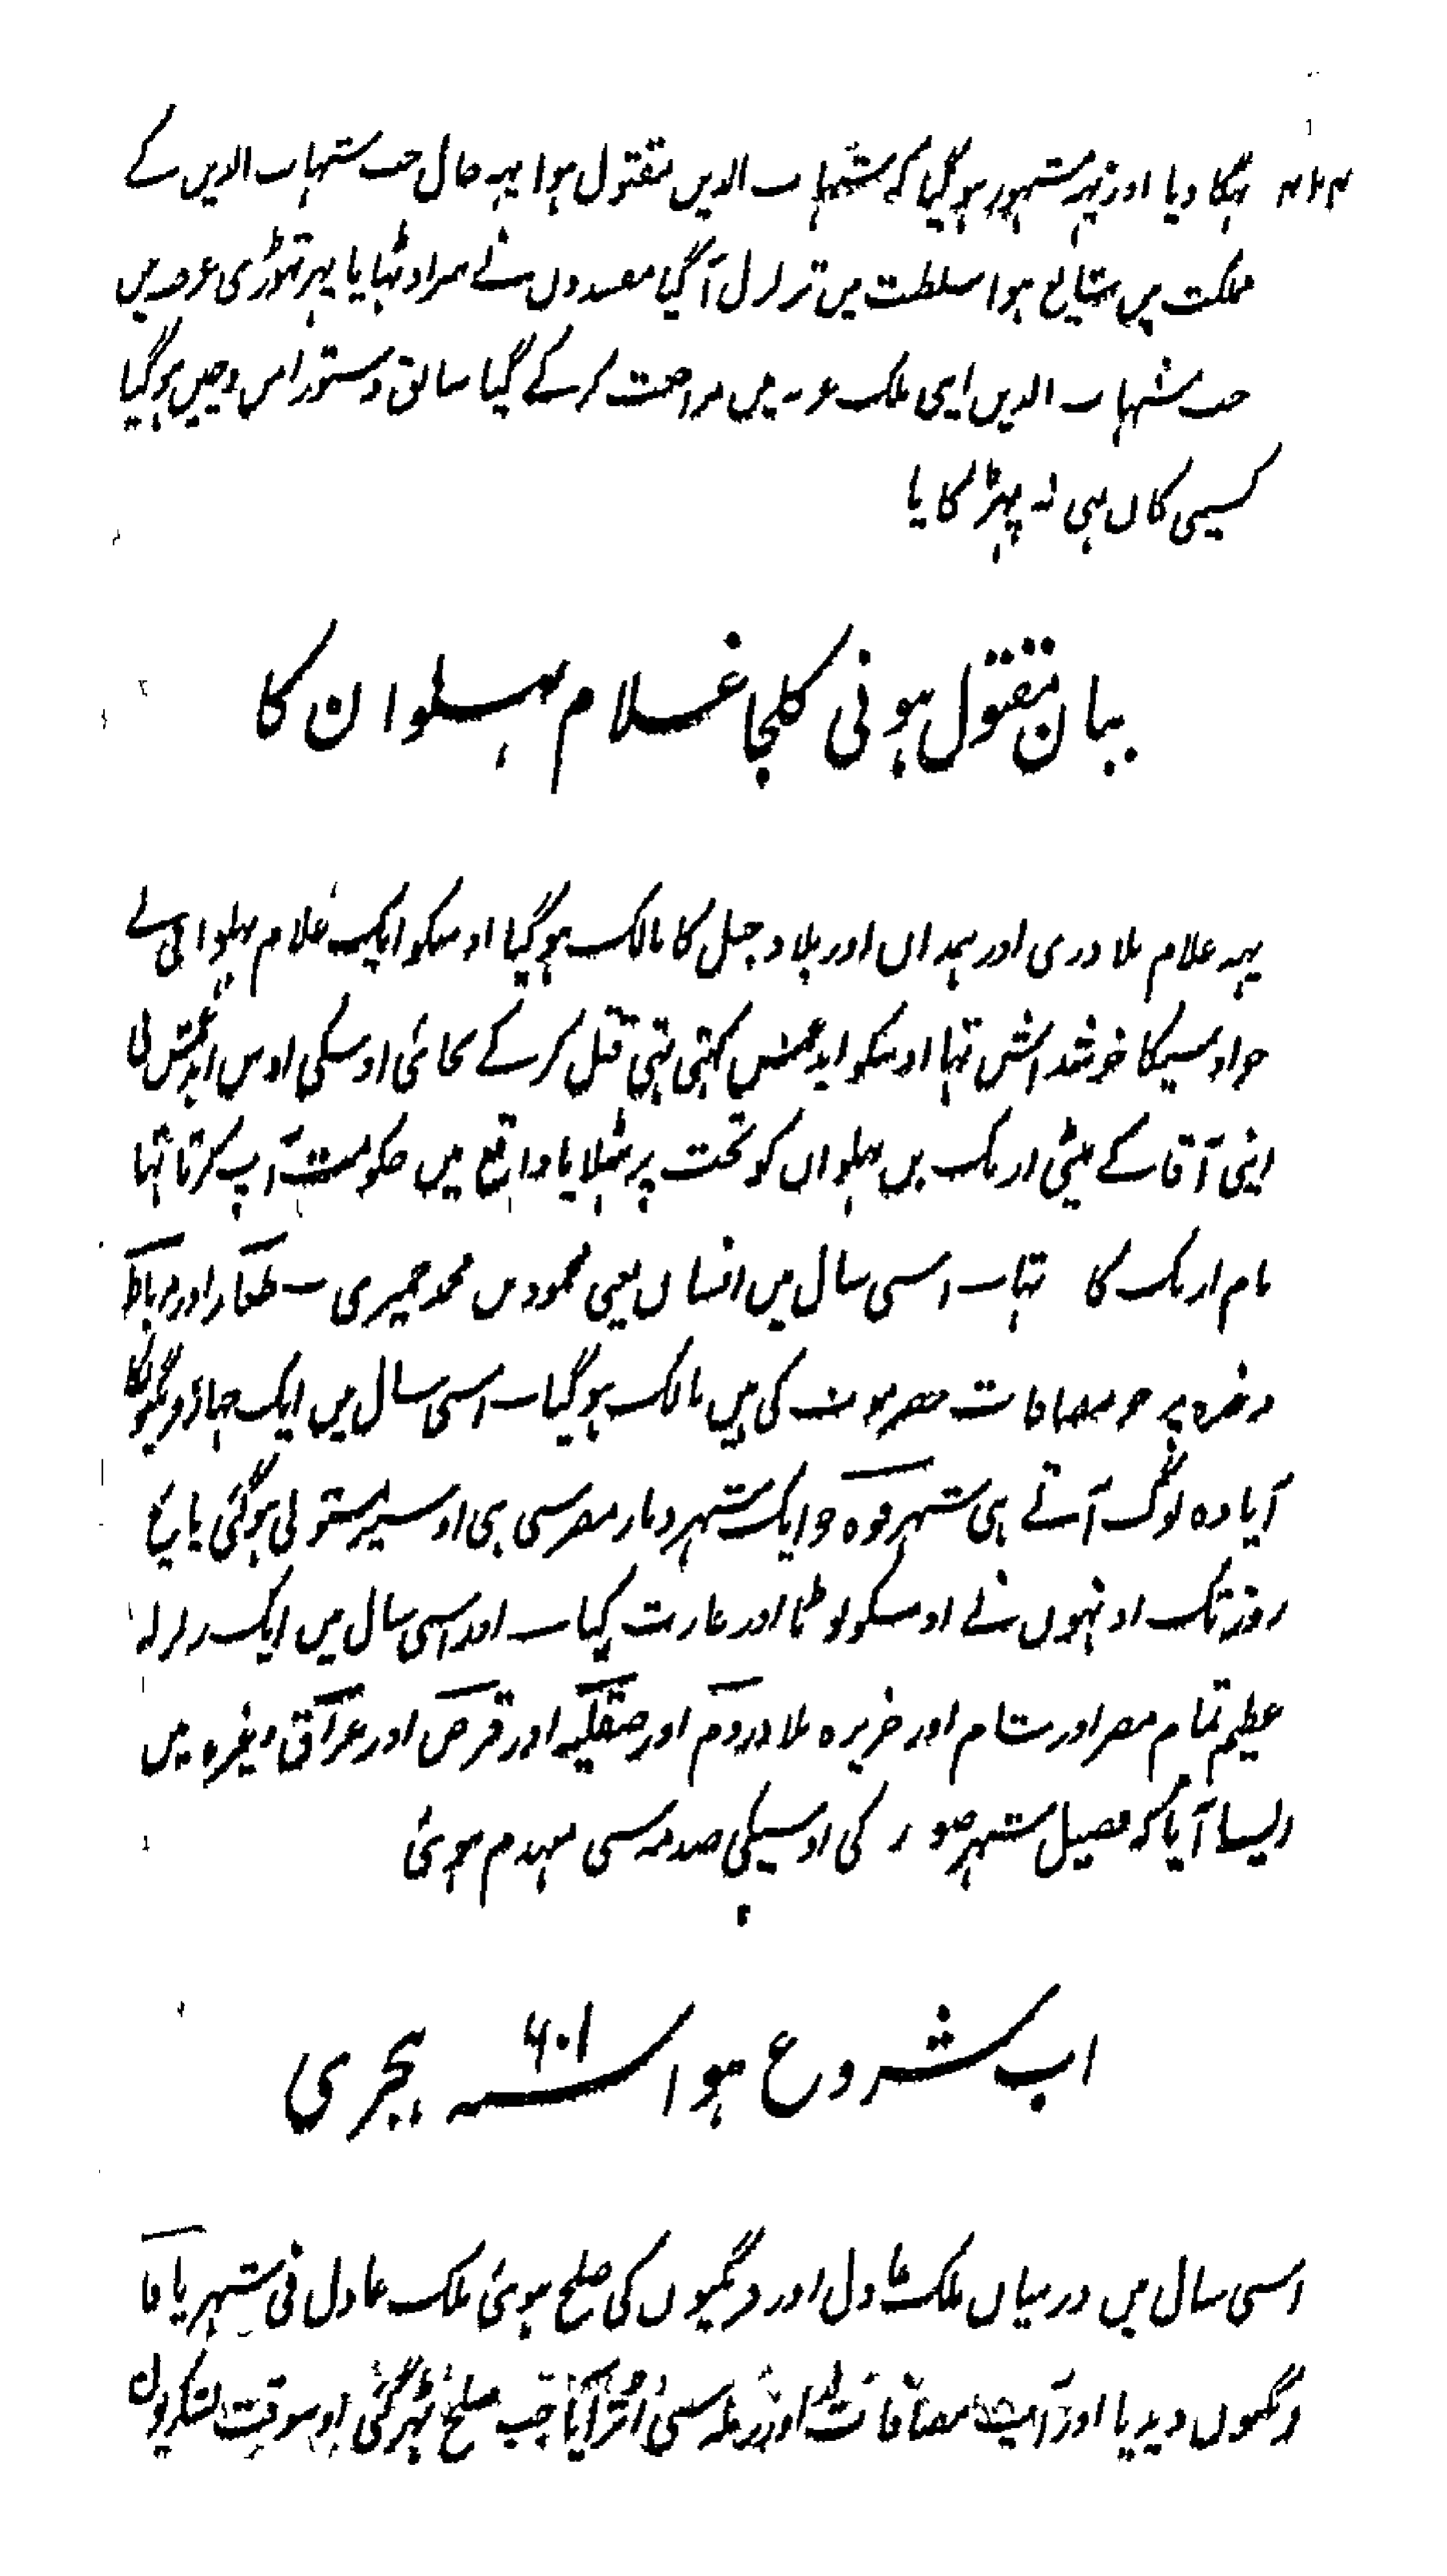 بہگا دیا اور یہہ مشہور ہو گیا کہ شہاب الدین مقتول ہوا یہہ حال جب شہاب الدین کے
مملکت میں شایع ہوا سلطنت میں تزلزل آگیا مفسدوں نے سر اوٹہایا پہر تہوڑی عرصہ میں
جب شہاب الدین اپنی ملک غزنہ میں مراجعت کر کے گیا سابق دستور امن و چین ہو گیا
کسی کا ں بہی نہ پہڑکایا
بیان مقتول ہونی کلجا غلام پہلوان کا
یہہ غلام بلاد ری اور ہمدان اور بلاد جبل کا مالک ہو گیا اوسکو ایک غلام پہلوانی نے
جو اوسیکا خوشداش تہا اوسکو ایدغمش کہتی تہی قتل کر کے بجائی اوسکی اوس ایدغمش نی
اپنی آقا کے بیٹی ازبک بن پہلوان کو تخت پر بٹہلایا واقع میں حکومت آپ کرتا تہا
نام ازبک کا تہا۔ اسی سال میں انسان یعنی محمود بن محمد حمیری ۔ ظفار اور مرباط
وغیرہ پر جو مضافات حضرموت کی ہیں مالک ہو گیا۔ اسی سال میں ایک جہاز فرنگیوں کا
آیا وہ لوگ آتے ہی شہر فوہ جو ایک شہر دیار مصر سی ہی اوسپر مستولی ہو گئی پانچ
روز تک اونہوں نے اوسکو لوٹا اور غارت کیا۔ اور اسی سال میں ایک زلزلہ
عظیم تمام مصر اور شام اور جزیرہ بلاد روم اور صقلیہ اور قبرص اور عراق وغیرہ میں
ایسا آیا کہ فصیل شہر صور کی اوسیکی صدمہ سی منہدم ہوئی
اب شروع ہوا سنہ ۶۰۱ ہجری
اسی سال میں درمیان ملک عادل اور فرنگیوں کی صلح ہوئی ملک عادل نی شہر یافا
فرنگیوں دیدیا اور مضافات لد اور رملہ سی اتر آیا جب صلح ٹہر گئی اوسوقت لشکریوں